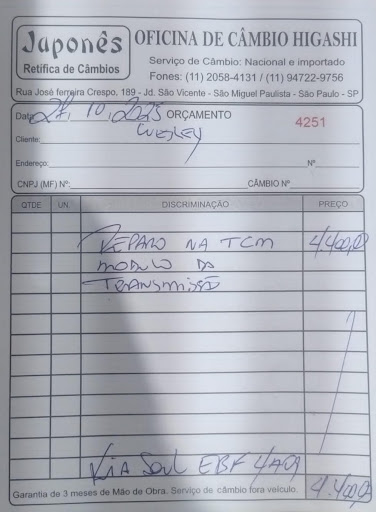 Japonês
Retífica de Câmbios
OFICINA DE CÂMBIO HIGASHI
Serviço de Câmbio: Nacional e importado
Fones: (11) 2058-4131 / (11) 94722-9756
Rua José ferreira Crespo, 189 - Jd. São Vicente - São Miguel Paulista - São Paulo - SP
Data 27, 10, 2025 ORÇAMENTO
4251
Cliente: Wesley
Endereço: Nº
CNPJ (MF) Nº: CÂMBIO Nº
QTDE UN. DISCRIMINAÇÃO PREÇO
REPARO NA TCM 4.400,00
MODULO DA
TRANSMISSÃO
KIA Soul EBF 4A09
Garantia de 3 meses de Mão de Obra. Serviço de câmbio fora veículo. 4.400,00